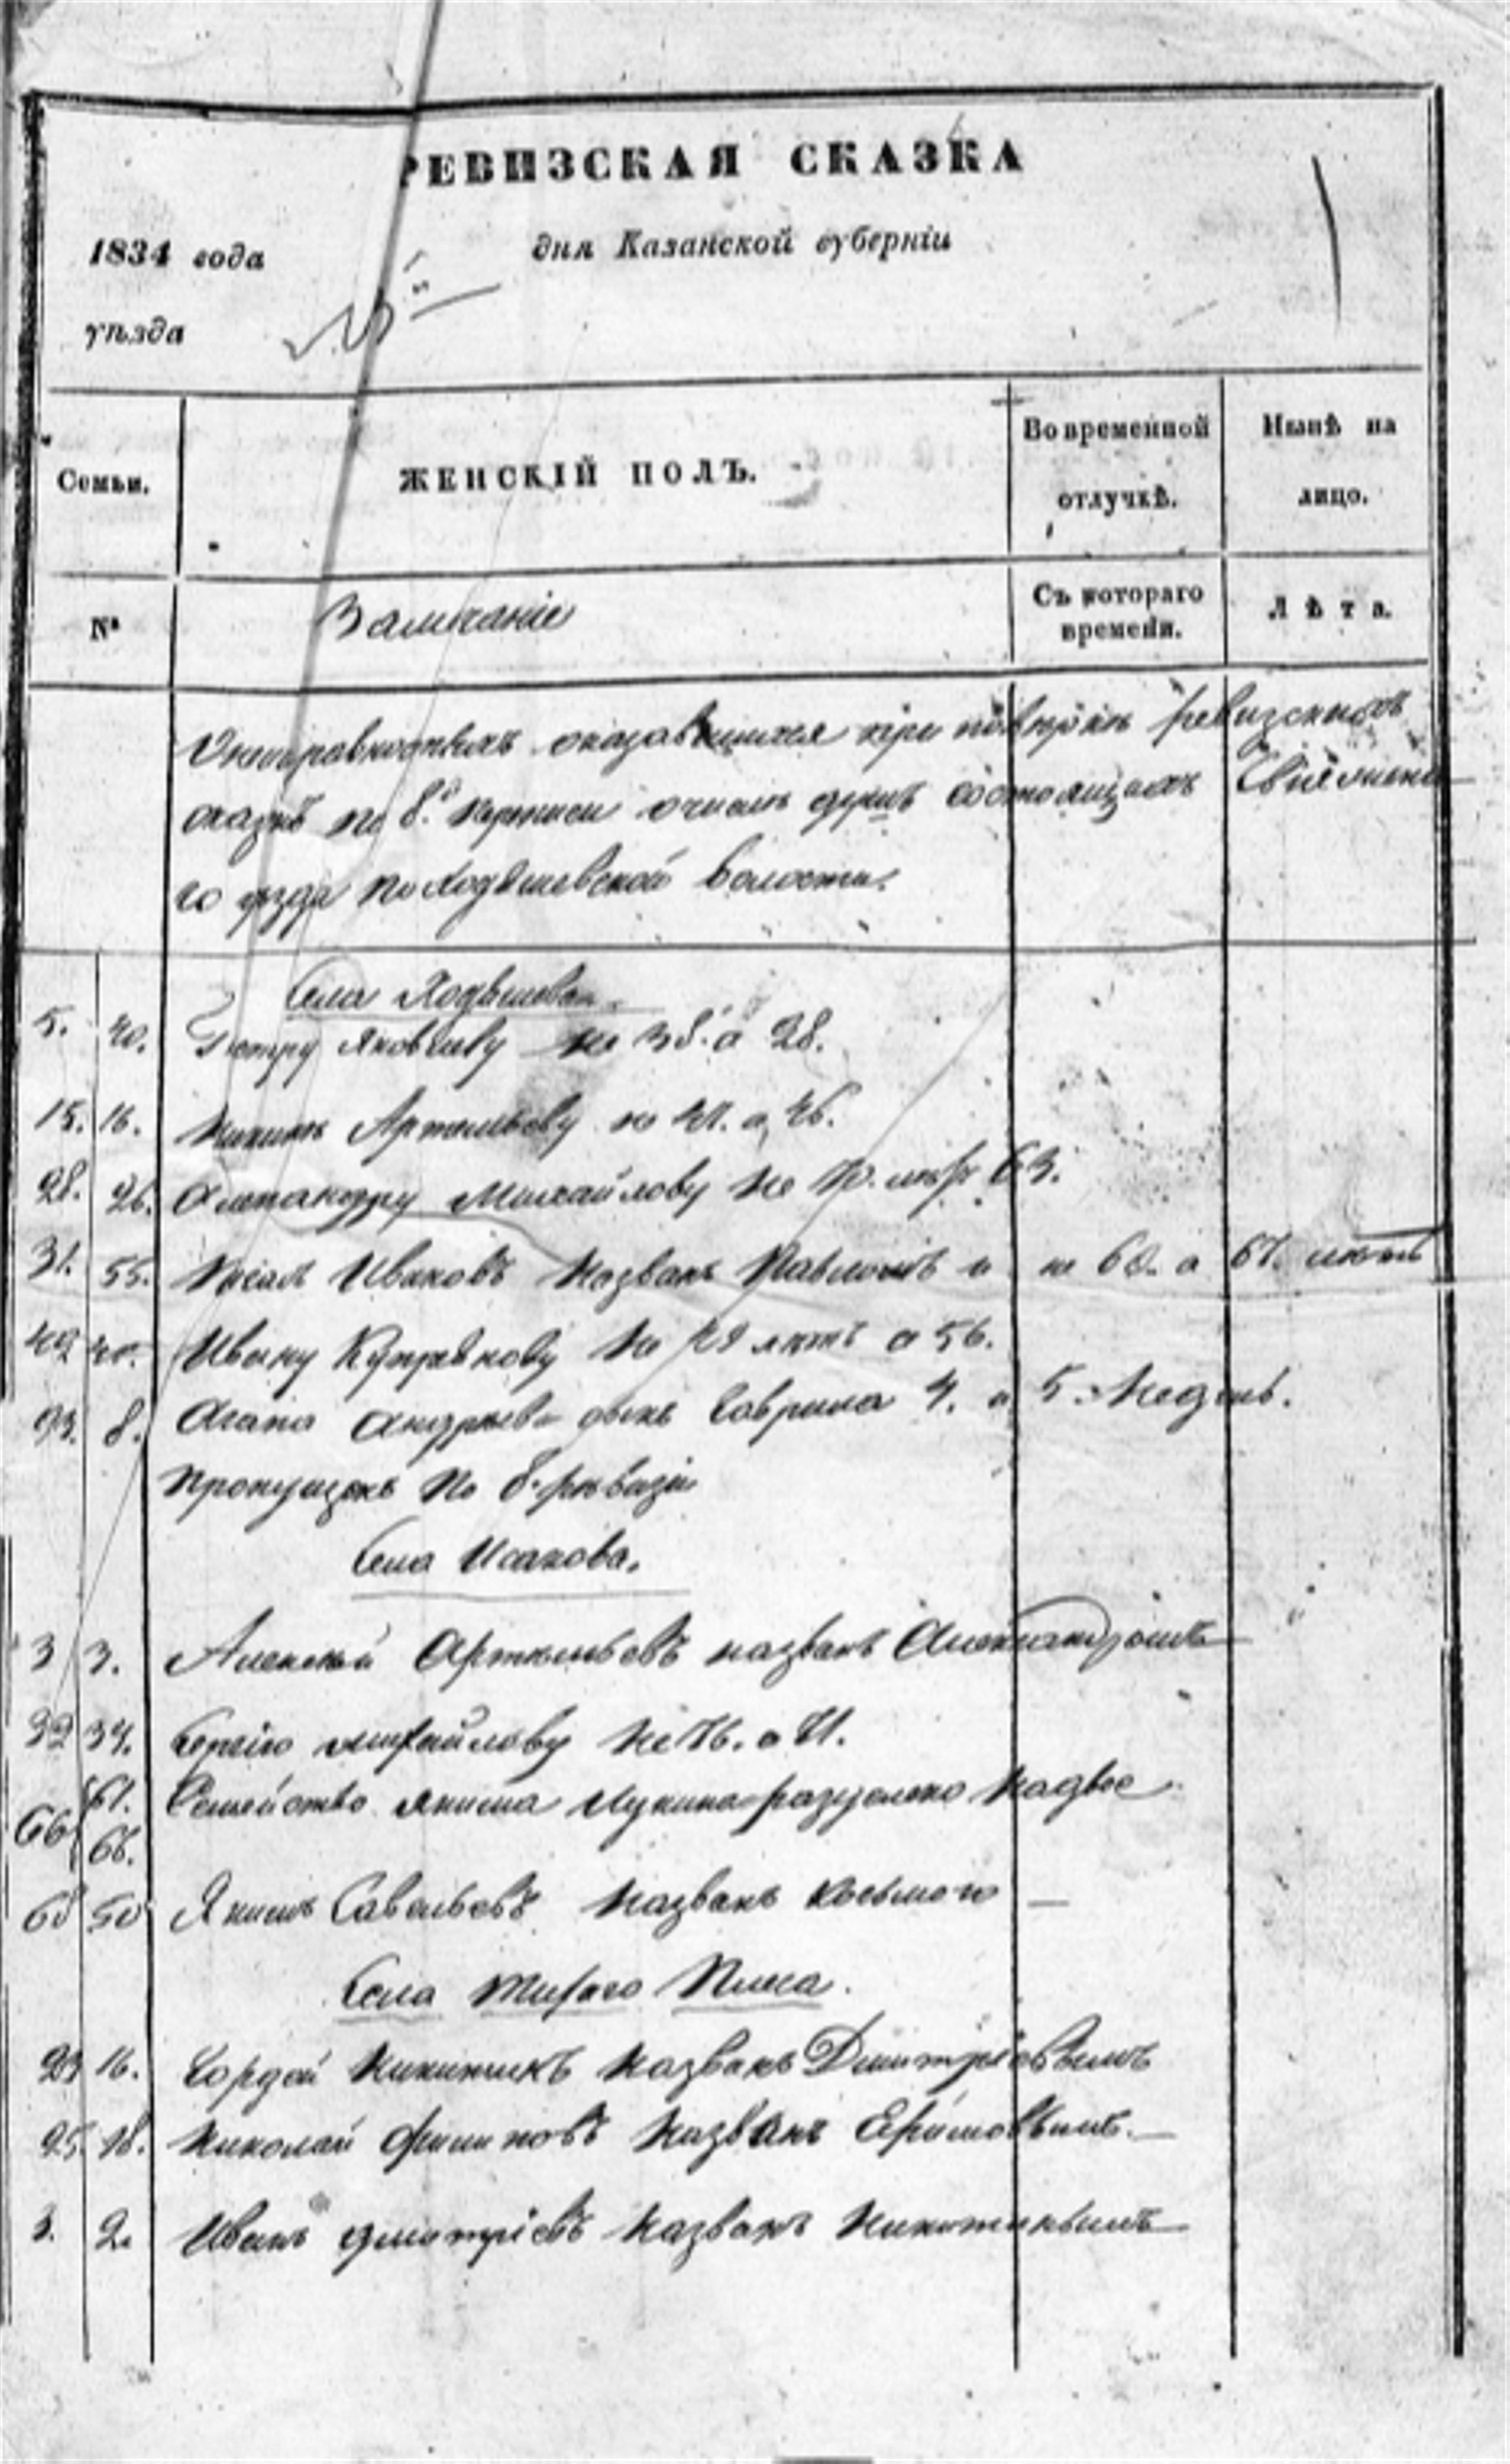 РЕВИЗСКАЯ СКАЗКА
1834 года дня Казанской губерніи
уѣзда
Семьи. ЖЕНСКІЙ ПОЛЪ. Во временной отлучкѣ. Нынѣ на лицо.
№ Замѣчаніе Съ котораго времени. Лѣта.
оказавшихся при повѣркѣ ревизскихъ
сказокъ по 8й переписи о числѣ душъ состоящихъ Свіяжска
го уѣзда по Ходяшевской волости.
Села Ходяшева.
5. 40. Петру Яковлеву не 38. а 28.
15. 16. Никитѣ Артемьеву не 41. а 46.
28. 26. Александру Михайлову не 63.
31. 55. Ивановъ названъ Павломъ и не 60. а 67. лѣтъ
49 Ивану не лѣтъ а 56.
93. 8. Агапа Андреева сынъ Гаврила 4. а 5. недѣль.
Пропущенъ по 8. ревизіи
Села Исакова.
3 3. Алексѣй Артемьевъ названъ Александромъ
32 34. Сергію Михайлову не 76. а 71.
66 67. 68. Семейство Якима Лукина раздѣлено надвое
68 50 Якимъ Савельевъ названъ Косьмою
Села Тихаго Плеса.
23 16. Гордѣй Никитинъ названъ Дмитріевымъ
25. 18. Николай Филиповъ названъ Ефимовымъ.
3. 2. Иванъ Дмитріевъ названъ Никитинымъ